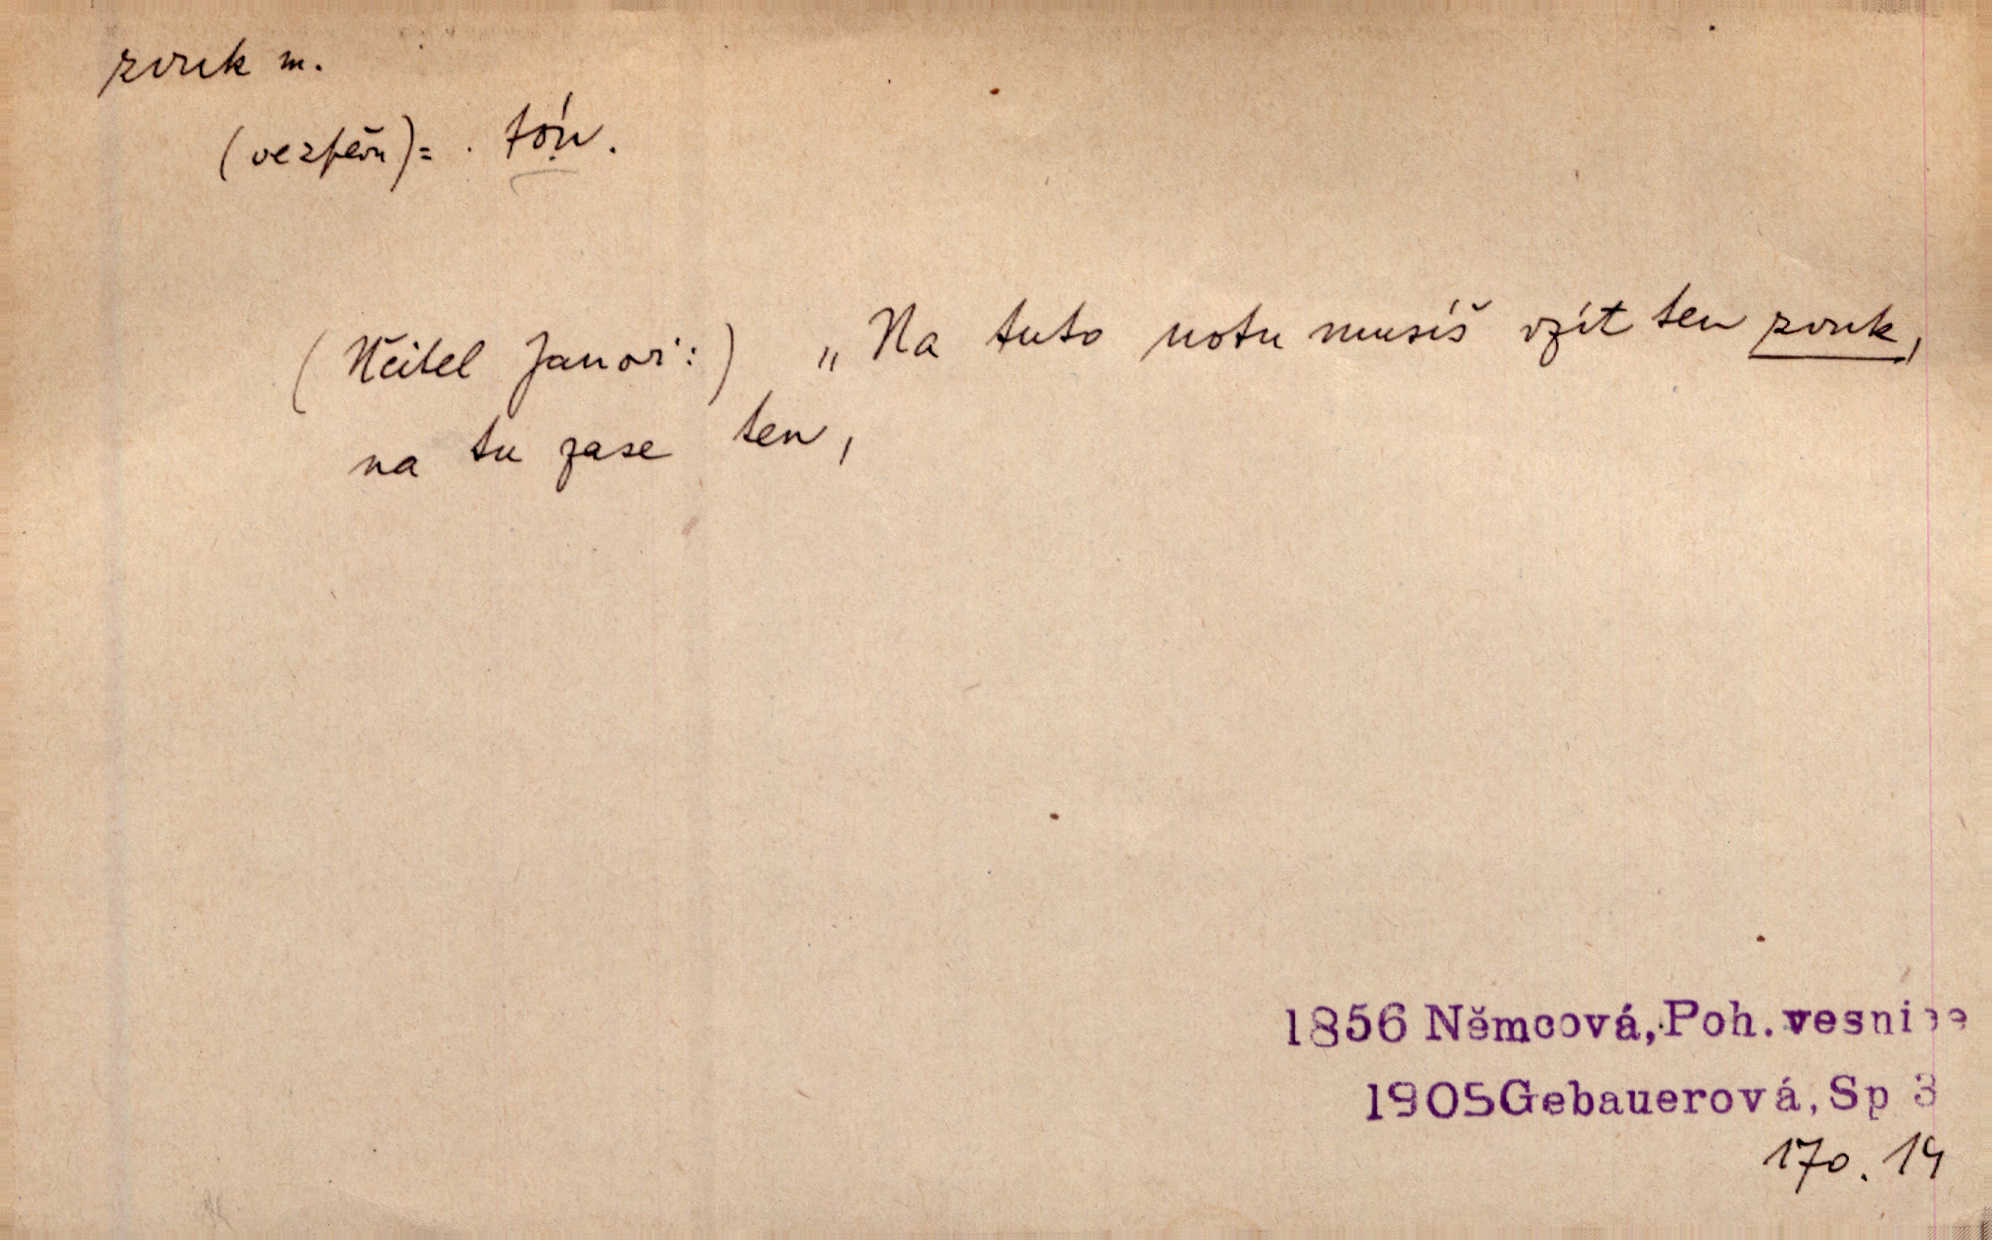 zvuk m.
(ve zpěvu) = . tón.
(Učitel Janovi:) „Na tuto notu musíš vzít ten zvuk,
na tu zase ten,
1856 Němcová, Poh. vesnice
1905 Gebauerová, Sp 3
170. 14